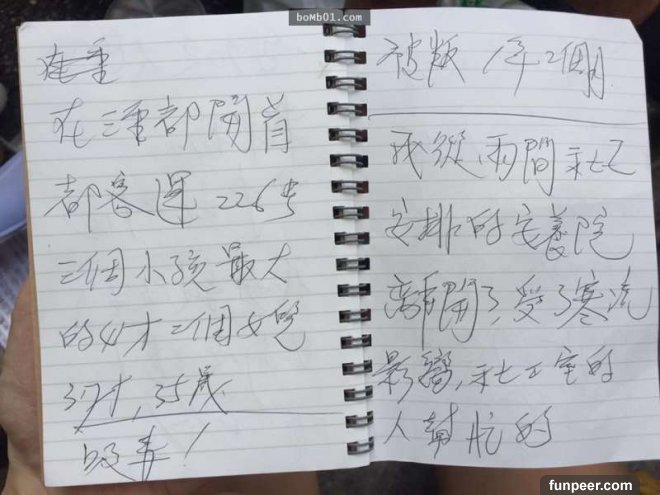 boMb01.com
在三重都開首
都客運226号
三個小孩最大
的41才二個女兒
37才,35歲
吸毒!
1年2個月
我從兩間社工
安排的安養院
離開了,受了寒流
影響,社工室的
人幫忙的
funpeer.com